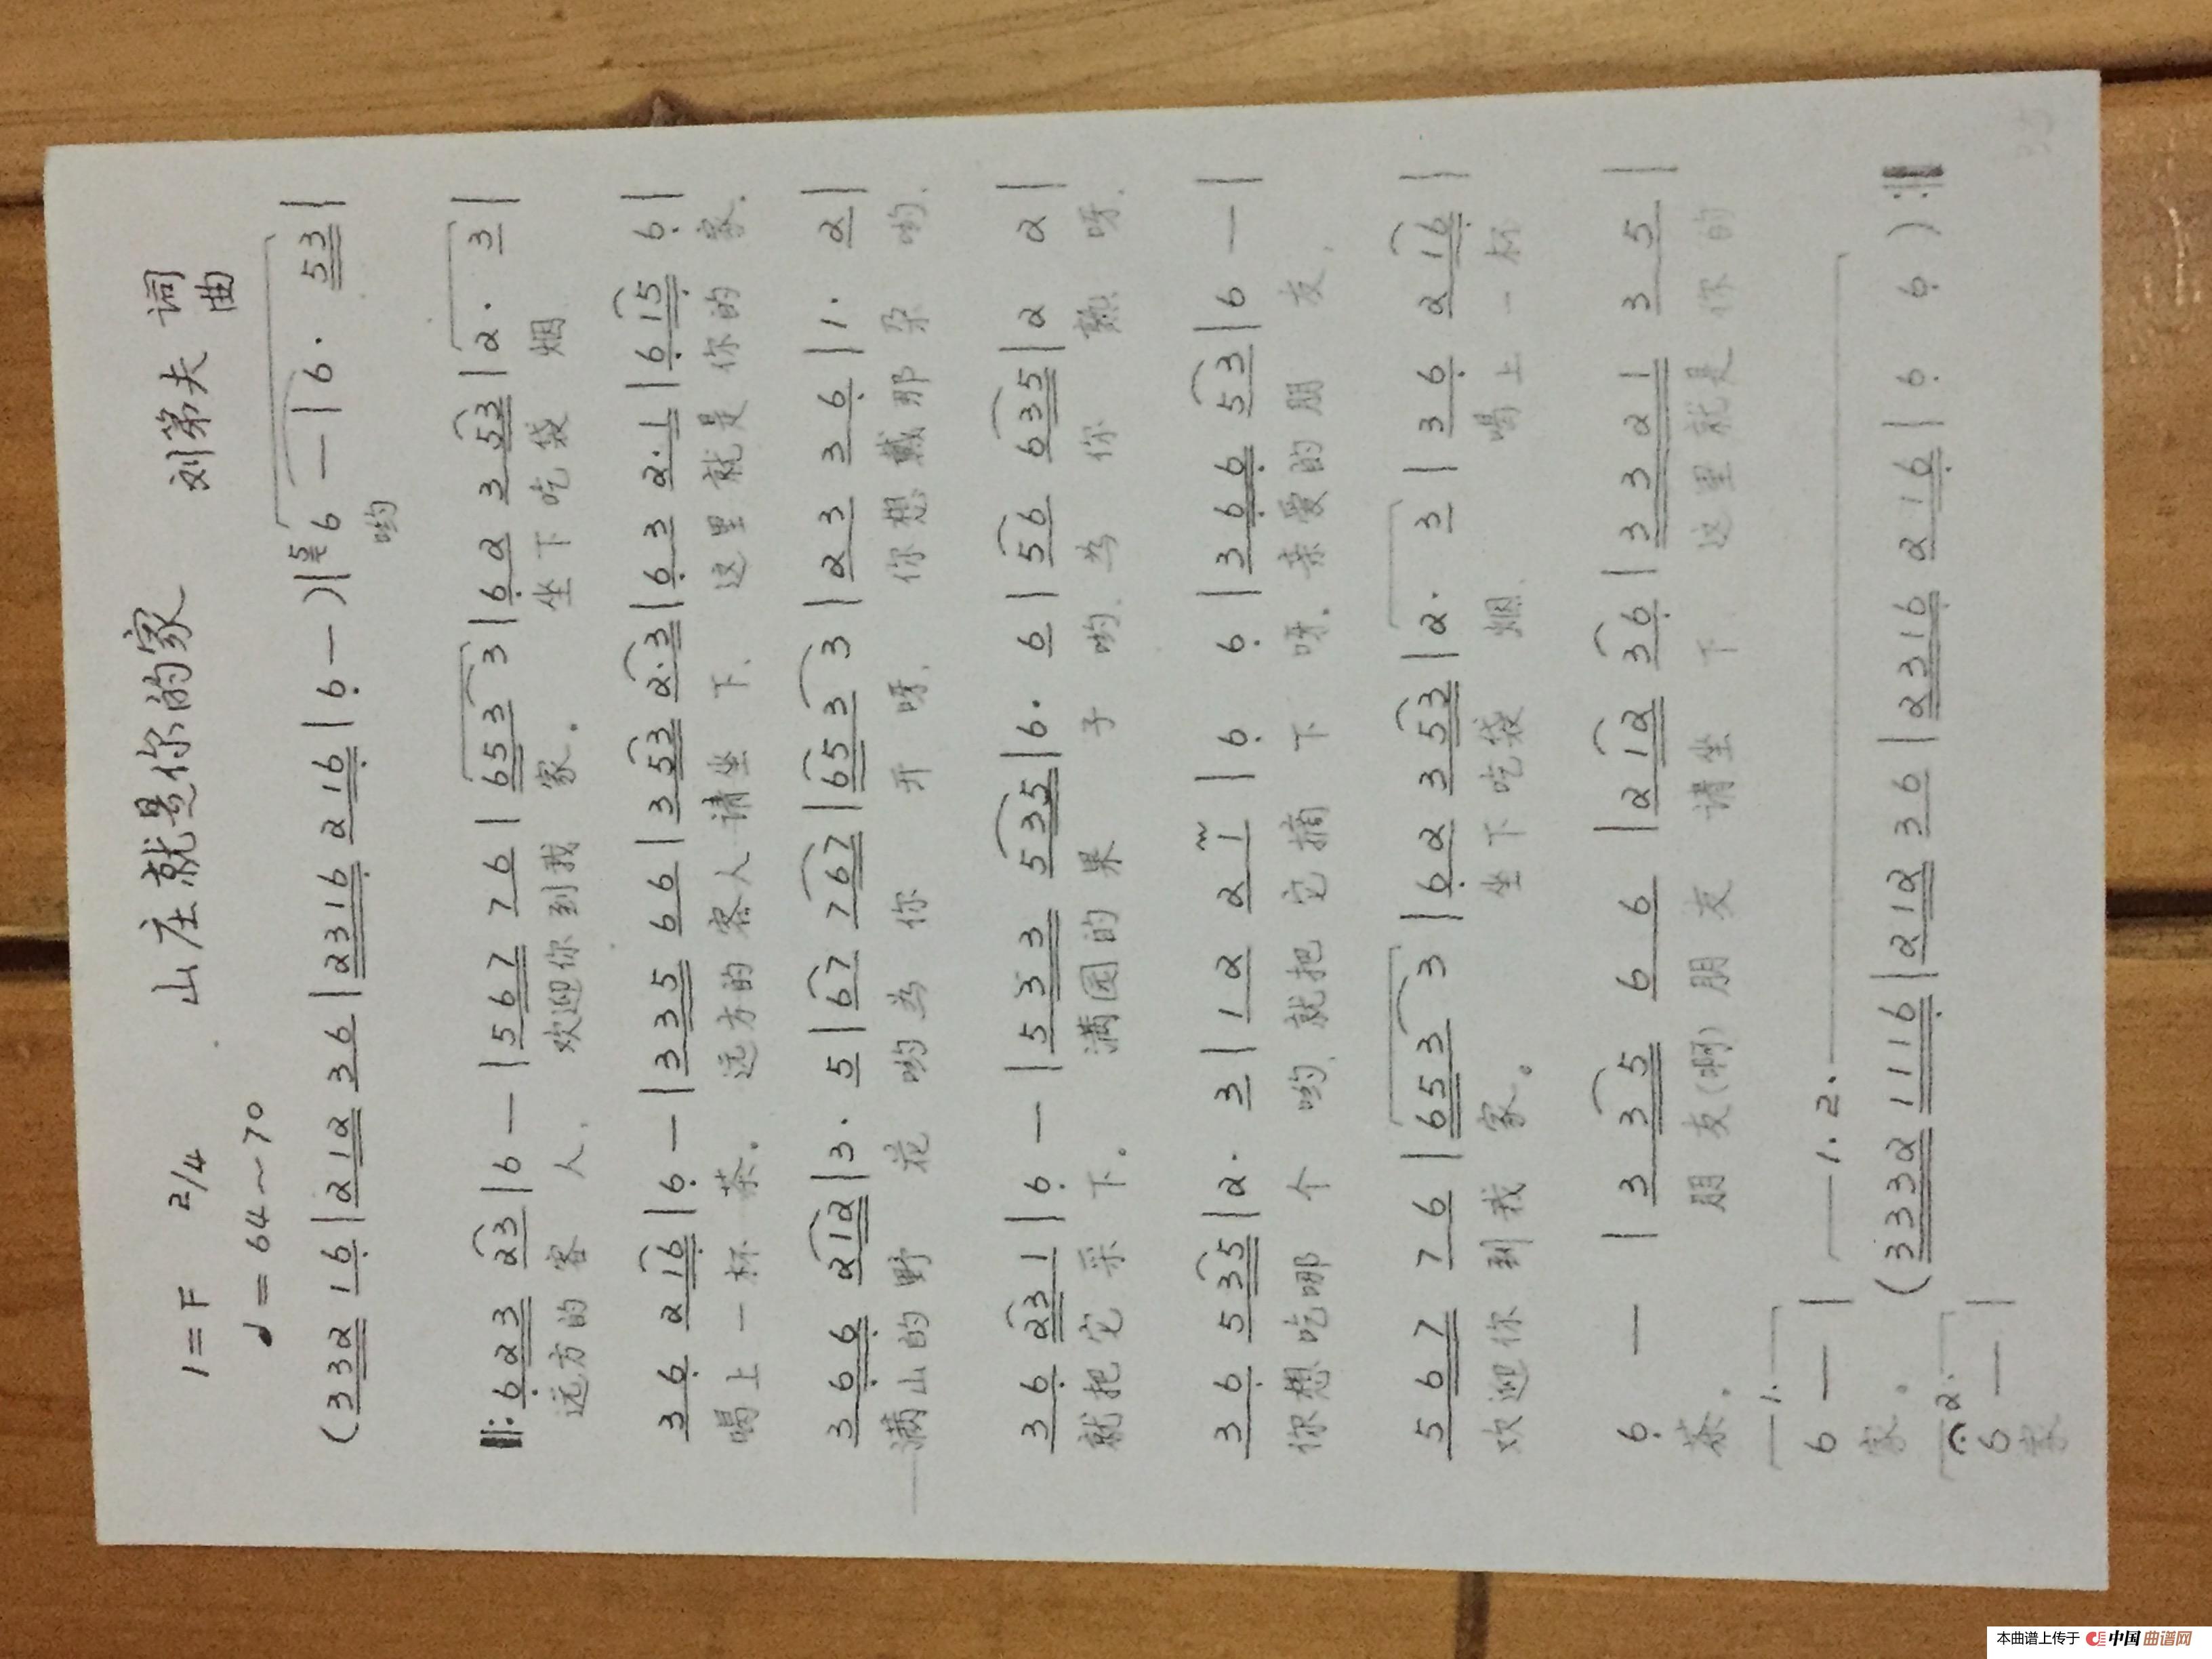 山庄就是你的家
刘第夫 词曲
1=F 2/4
♩=64~70
(332 16 | 212 36 | 2316 216 | 6 — ) | 6 — | 6 · 53 |
哟
‖: 6 2 3 23 | 6 — | 5 6 7 7 6 | 6 5 3 3 | 6 2 3 53 | 2 · 3 |
远方的客人, 欢迎你到我家。 坐下吃袋烟
3 6 2 16 | 6 — | 3 3 5 6 6 | 3 53 2·3 | 6 3 2·1 | 6 15 6 |
喝上一杯茶。 远方的客人请坐下, 这里就是你的家.
3 6 6 212 | 3 · 5 | 67 767 | 65 3 3 | 2 3 3 6 | 1 · 2 |
满山的野花哟为你开呀, 你想戴那朵哟.
3 6 231 | 6 — | 5 3 3 535 | 6 · 6 | 56 635 | 2 2 |
就把它采下。 满园的果子哟. 为你熟呀.
3 6 5 35 | 2 · 3 | 1 2 2 1 | 6 6 | 3 6 6 53 | 6 — |
你想吃哪个哟, 就把它摘下呀. 亲爱的朋友,
5 6 7 7 6 | 6 5 3 3 | 6 2 3 53 | 2 · 3 | 3 6 2 16 |
欢迎你到我家。 坐下吃袋烟, 喝上一杯
6 — | 3 3 5 6 6 | 2 12 36 | 3 3 2 1 3 5 |
茶。 朋友(啊)朋友 请坐下 这里就是你的
1. 1.2.
6 — | (3332 1116 | 212 36 | 2316 216 | 6 6 ) :‖
家。
2.
6 — |
家
本曲谱上传于 中国曲谱网